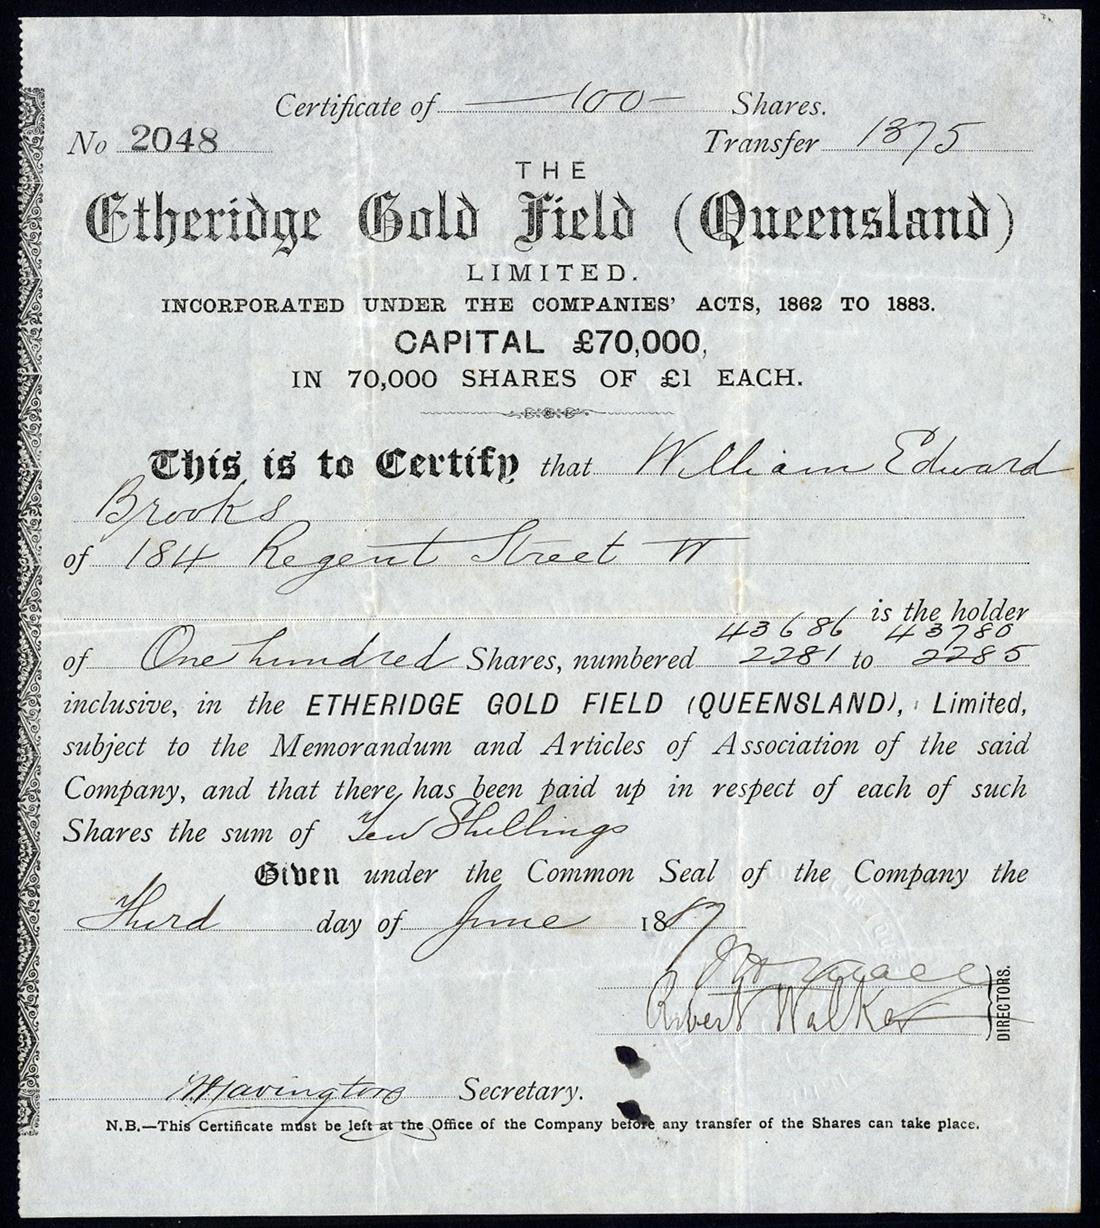 Certificate of 100 Shares.
No 2048 Transfer 1375
THE
Etheridge Gold Field (Queensland)
LIMITED.
INCORPORATED UNDER THE COMPANIES' ACTS, 1862 TO 1883.
CAPITAL £70,000,
IN 70,000 SHARES OF £1 EACH.
This is to Certify that William Edward
Brooks
of 184 Regent Street W
is the holder
43686 43780
of One hundred Shares, numbered 2281 to 2285
inclusive, in the ETHERIDGE GOLD FIELD (QUEENSLAND), Limited,
subject to the Memorandum and Articles of Association of the said
Company, and that there has been paid up in respect of each of such
Shares the sum of Ten Shillings
Given under the Common Seal of the Company the
Third day of June 1887
Robert Walker
DIRECTORS.
Secretary.
N.B.—This Certificate must be left at the Office of the Company before any transfer of the Shares can take place.